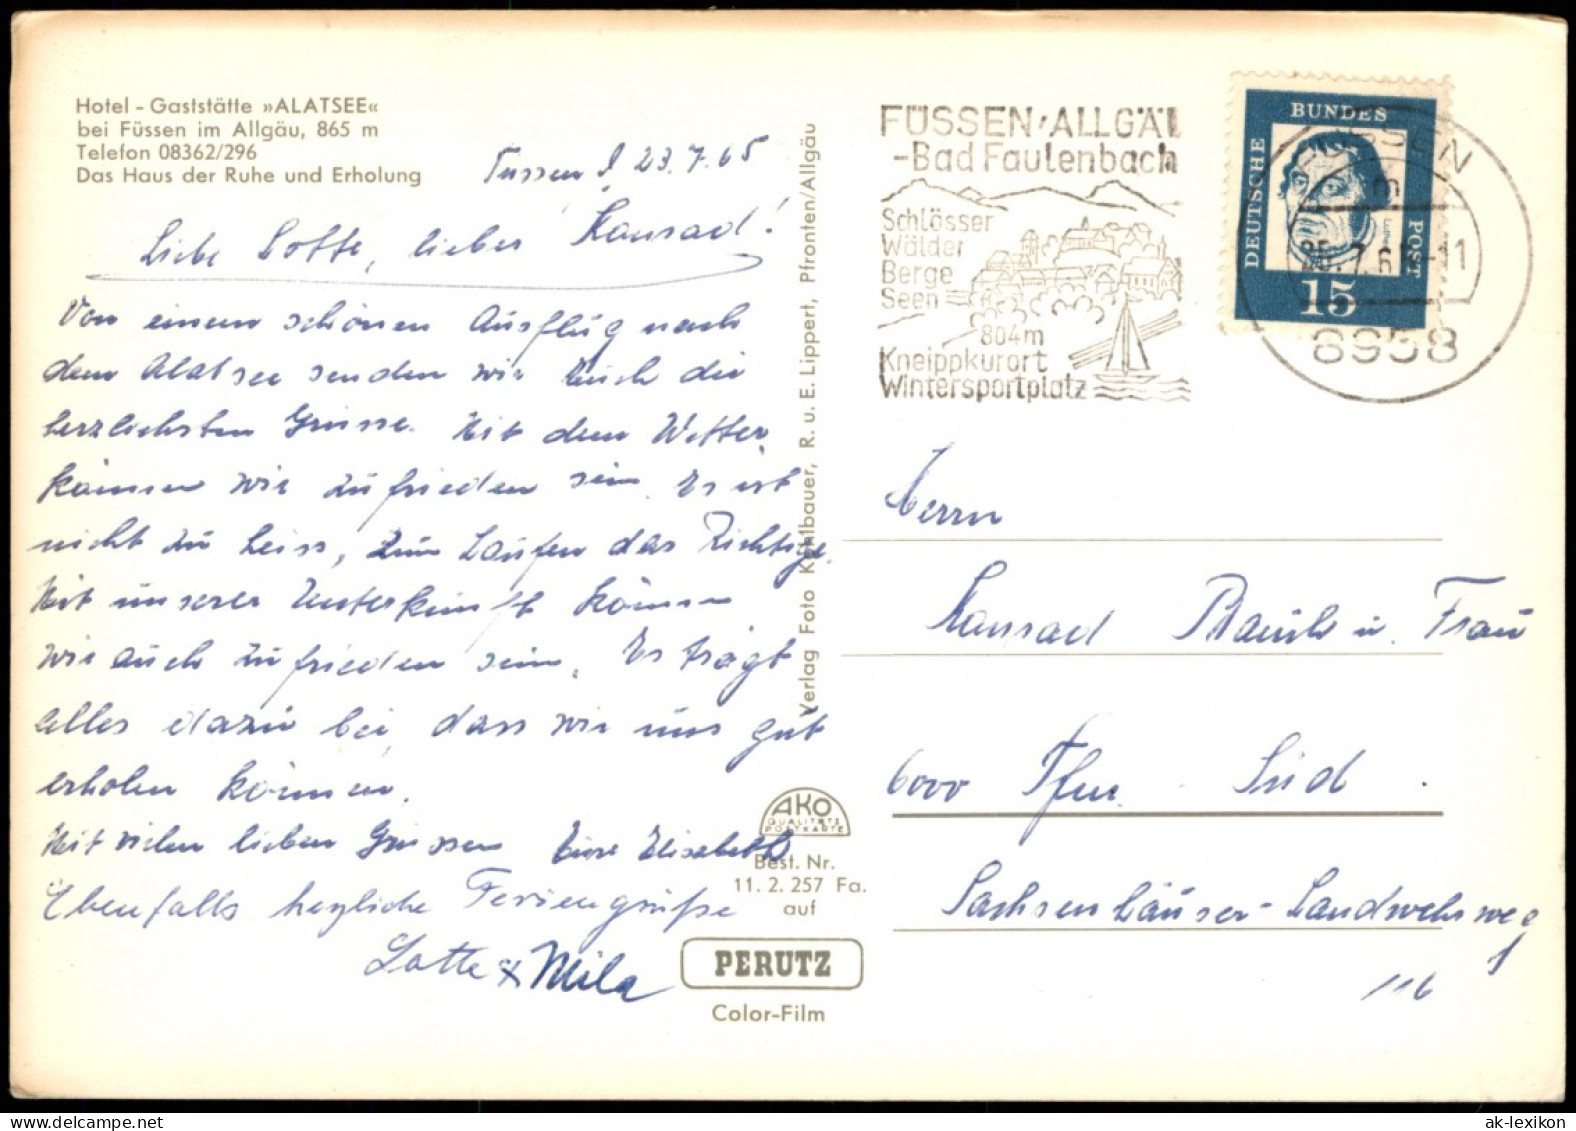 Hotel - Gaststätte »ALATSEE«
bei Füssen im Allgäu, 865 m
Telefon 08362/296
Das Haus der Ruhe und Erholung
Füssen, 23.7.65
Liebe Lotte, lieber Konrad!
Von einem schönen Ausflug nach
dem Alatsee senden wir Euch die
herzlichsten Grüsse. Mit dem Wetter
können wir zufrieden sein. Es ist
nicht zu heiss, zum Laufen das Richtige.
Mit unserer Unterkunft können
wir auch zufrieden sein. Es trägt
alles dazu bei, dass wir uns gut
erholen können.
Mit vielen lieben Grüssen Eure Elisabeth
Ebenfalls herzliche Feriengrüße
Lotte + Mila
Verlag Foto Kohlbauer, R. u. E. Lippert, Pfronten/Allgäu
AKO
QUALITÄTS
POSTKARTE
Best. Nr.
11. 2. 257 Fa.
auf
PERUTZ
Color-Film
FÜSSEN/ALLGÄU
-Bad Faulenbach
Schlösser
Wälder
Berge
Seen
804m
Kneippkurort
Wintersportplatz
DEUTSCHE
BUNDES
POST
15
FÜSSEN
m
25.7.65-11
8958
Herrn
Konrad u. Frau
6000 Ffm. Süd
Sachsenhäuser-Landwehrweg
116
ak-lexikon